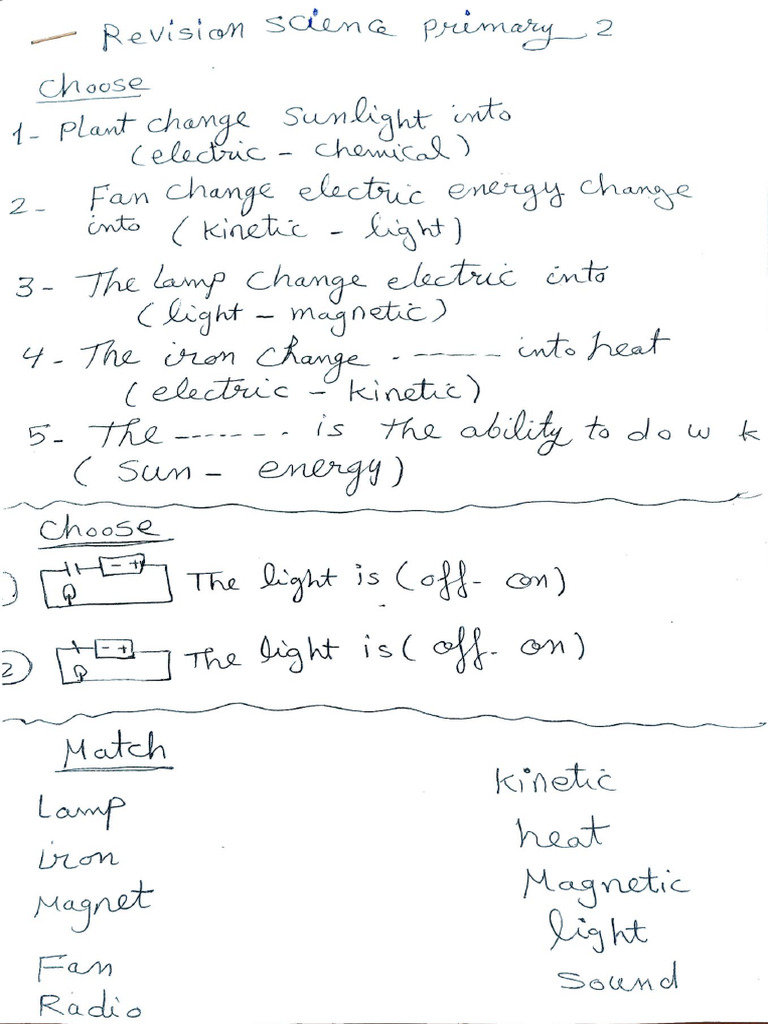 Revision science primary 2
Choose
1- Plant change sunlight into
(electric - chemical)
2- Fan change electric energy change
into (kinetic - light)
3- The Lamp change electric into
(light - magnetic)
4- The iron change ------ into heat
(electric - kinetic)
5- The ------- is the ability to do w k
(sun - energy)
Choose
1) - + The light is (off - on)
2) - + The light is (off - on)
Match
Lamp kinetic
iron heat
Magnet Magnetic
Fan light
Radio sound